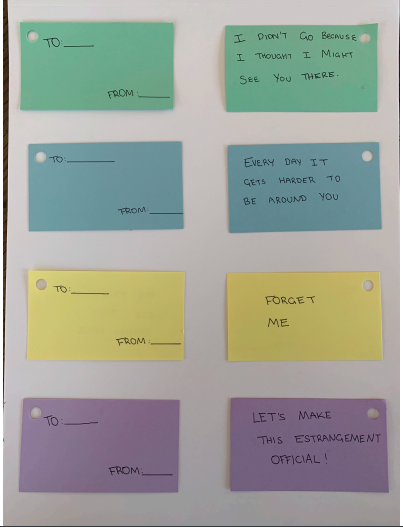 TO:_____
FROM:_____
I DIDN'T GO BECAUSE
I THOUGHT I MIGHT
SEE YOU THERE.
TO:_____
FROM:_____
EVERY DAY IT
GETS HARDER TO
BE AROUND YOU
TO:_____
FROM:_____
FORGET
ME
TO:_____
FROM:_____
LET'S MAKE
THIS ESTRANGEMENT
OFFICIAL!